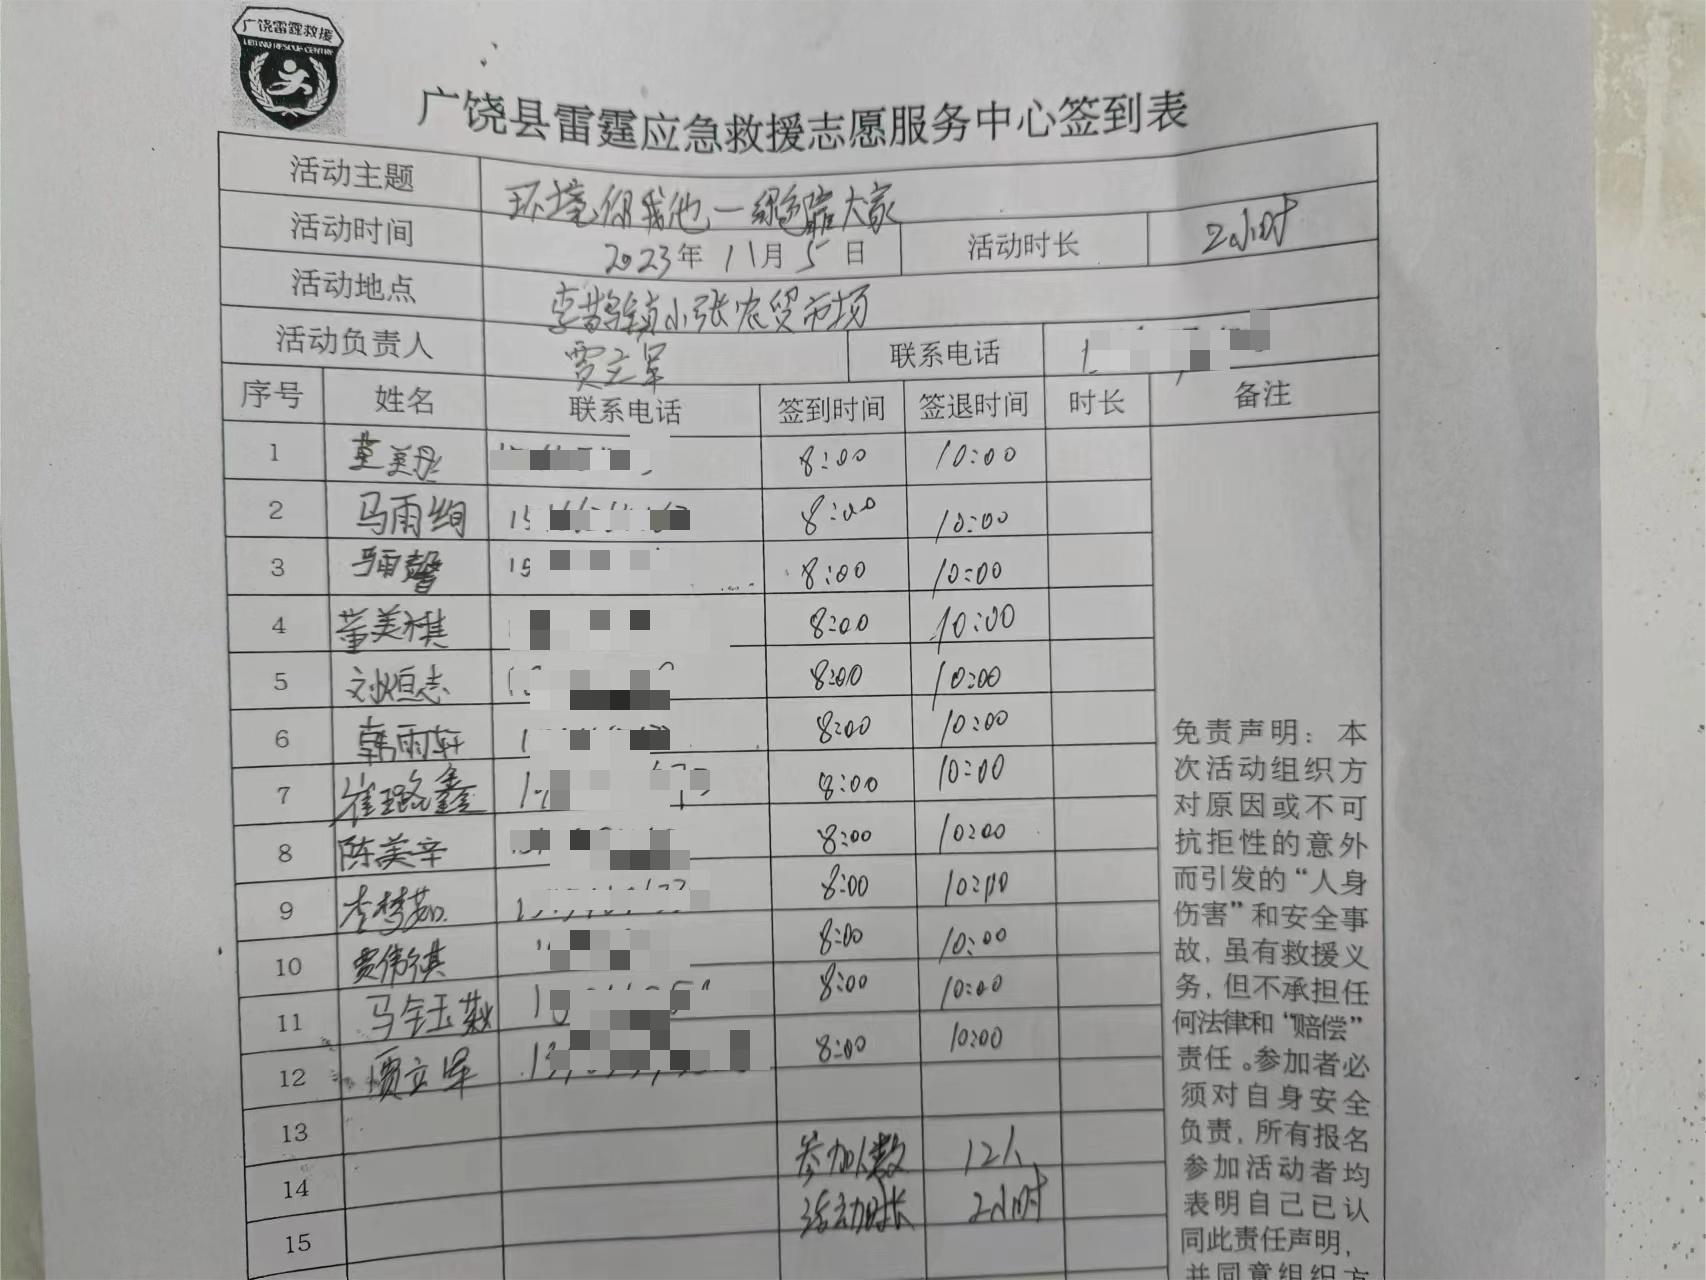 广饶雷霆救援
LEITING RESCUE CENTRE
广饶县雷霆应急救援志愿服务中心签到表
活动主题 环境你我他一绿色靠大家
活动时间 2023年11月5日 活动时长 2小时
活动地点 李鹊镇小张农贸市场
活动负责人 贾立军 联系电话
序号 姓名 联系电话 签到时间 签退时间 时长 备注
1 董美彤 8:00 10:00
2 马雨绚 15 8:00 10:00
3 马雨馨 15 8:00 10:00
4 董美祺 8:00 10:00
5 刘恒志 8:00 10:00
6 韩雨轩 8:00 10:00
7 崔璐鑫 8:00 10:00
8 陈美辛 8:00 10:00
9 李梦茹 8:00 10:00
10 贾伟祺 8:00 10:00
11 马金玉 8:00 10:00
12 贾立军 8:00 10:00
13
14 参加人数 12人
15 活动时长 2小时
免责声明：本
次活动组织方
对原因或不可
抗拒性的意外
而引发的“人身
伤害”和安全事
故，虽有救援义
务，但不承担任
何法律和“赔偿”
责任。参加者必
须对自身安全
负责，所有报名
参加活动者均
表明自己已认
同此责任声明，
并同意组织方